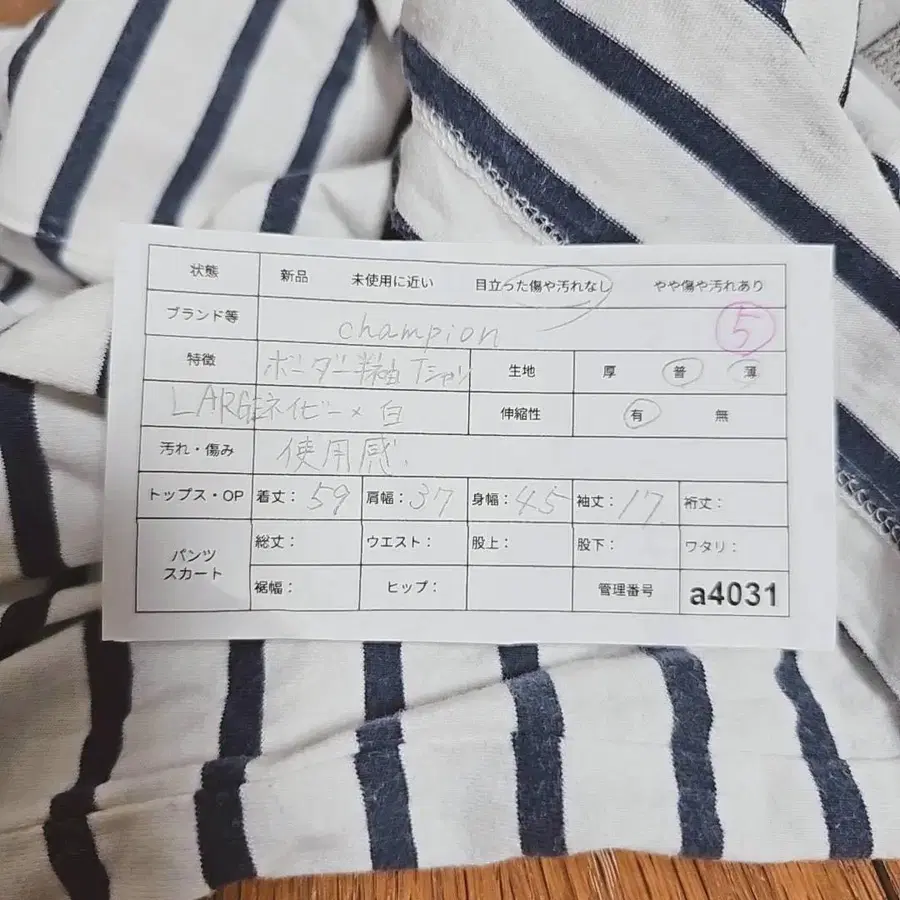 状態 新品 未使用に近い 目立った傷や汚れなし やや傷や汚れあり
ブランド等 champion 5
特徴 ボーダー半袖Tシャツ 生地 厚 普 薄
LARGE ネイビー×白 伸縮性 有 無
汚れ・傷み 使用感.
トップス・OP 着丈: 59 肩幅: 37 身幅: 45 袖丈: 17 裄丈:
パンツ 総丈: ウエスト: 股上: 股下: ワタリ:
スカート 裾幅: ヒップ: 管理番号 a4031